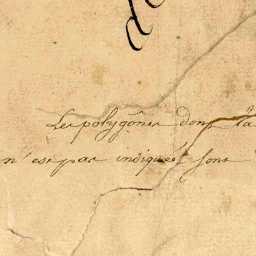 Les polygônes dont la
n'est pas indiquée sont